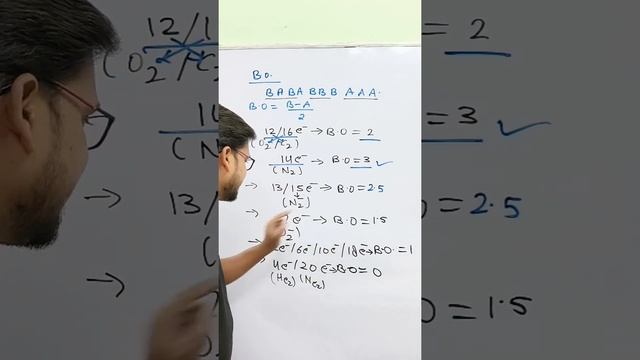 B.O.
BA BA BB B AAA.
B.O = B-A / 2
12/16e⁻ → B·O = 2
(O₂/C₂)
14e⁻ → B·O = 3 ✓
(N₂)
→ 13/15e⁻ → B·O = 2.5
(N₂⁻)
→ e⁻ → B·O = 1.5
→ e⁻/6e⁻/10e⁻/18e⁻ → B·O· = 1
4e⁻/20e⁻ → B·O = 0
(He₂) (Ne₂)